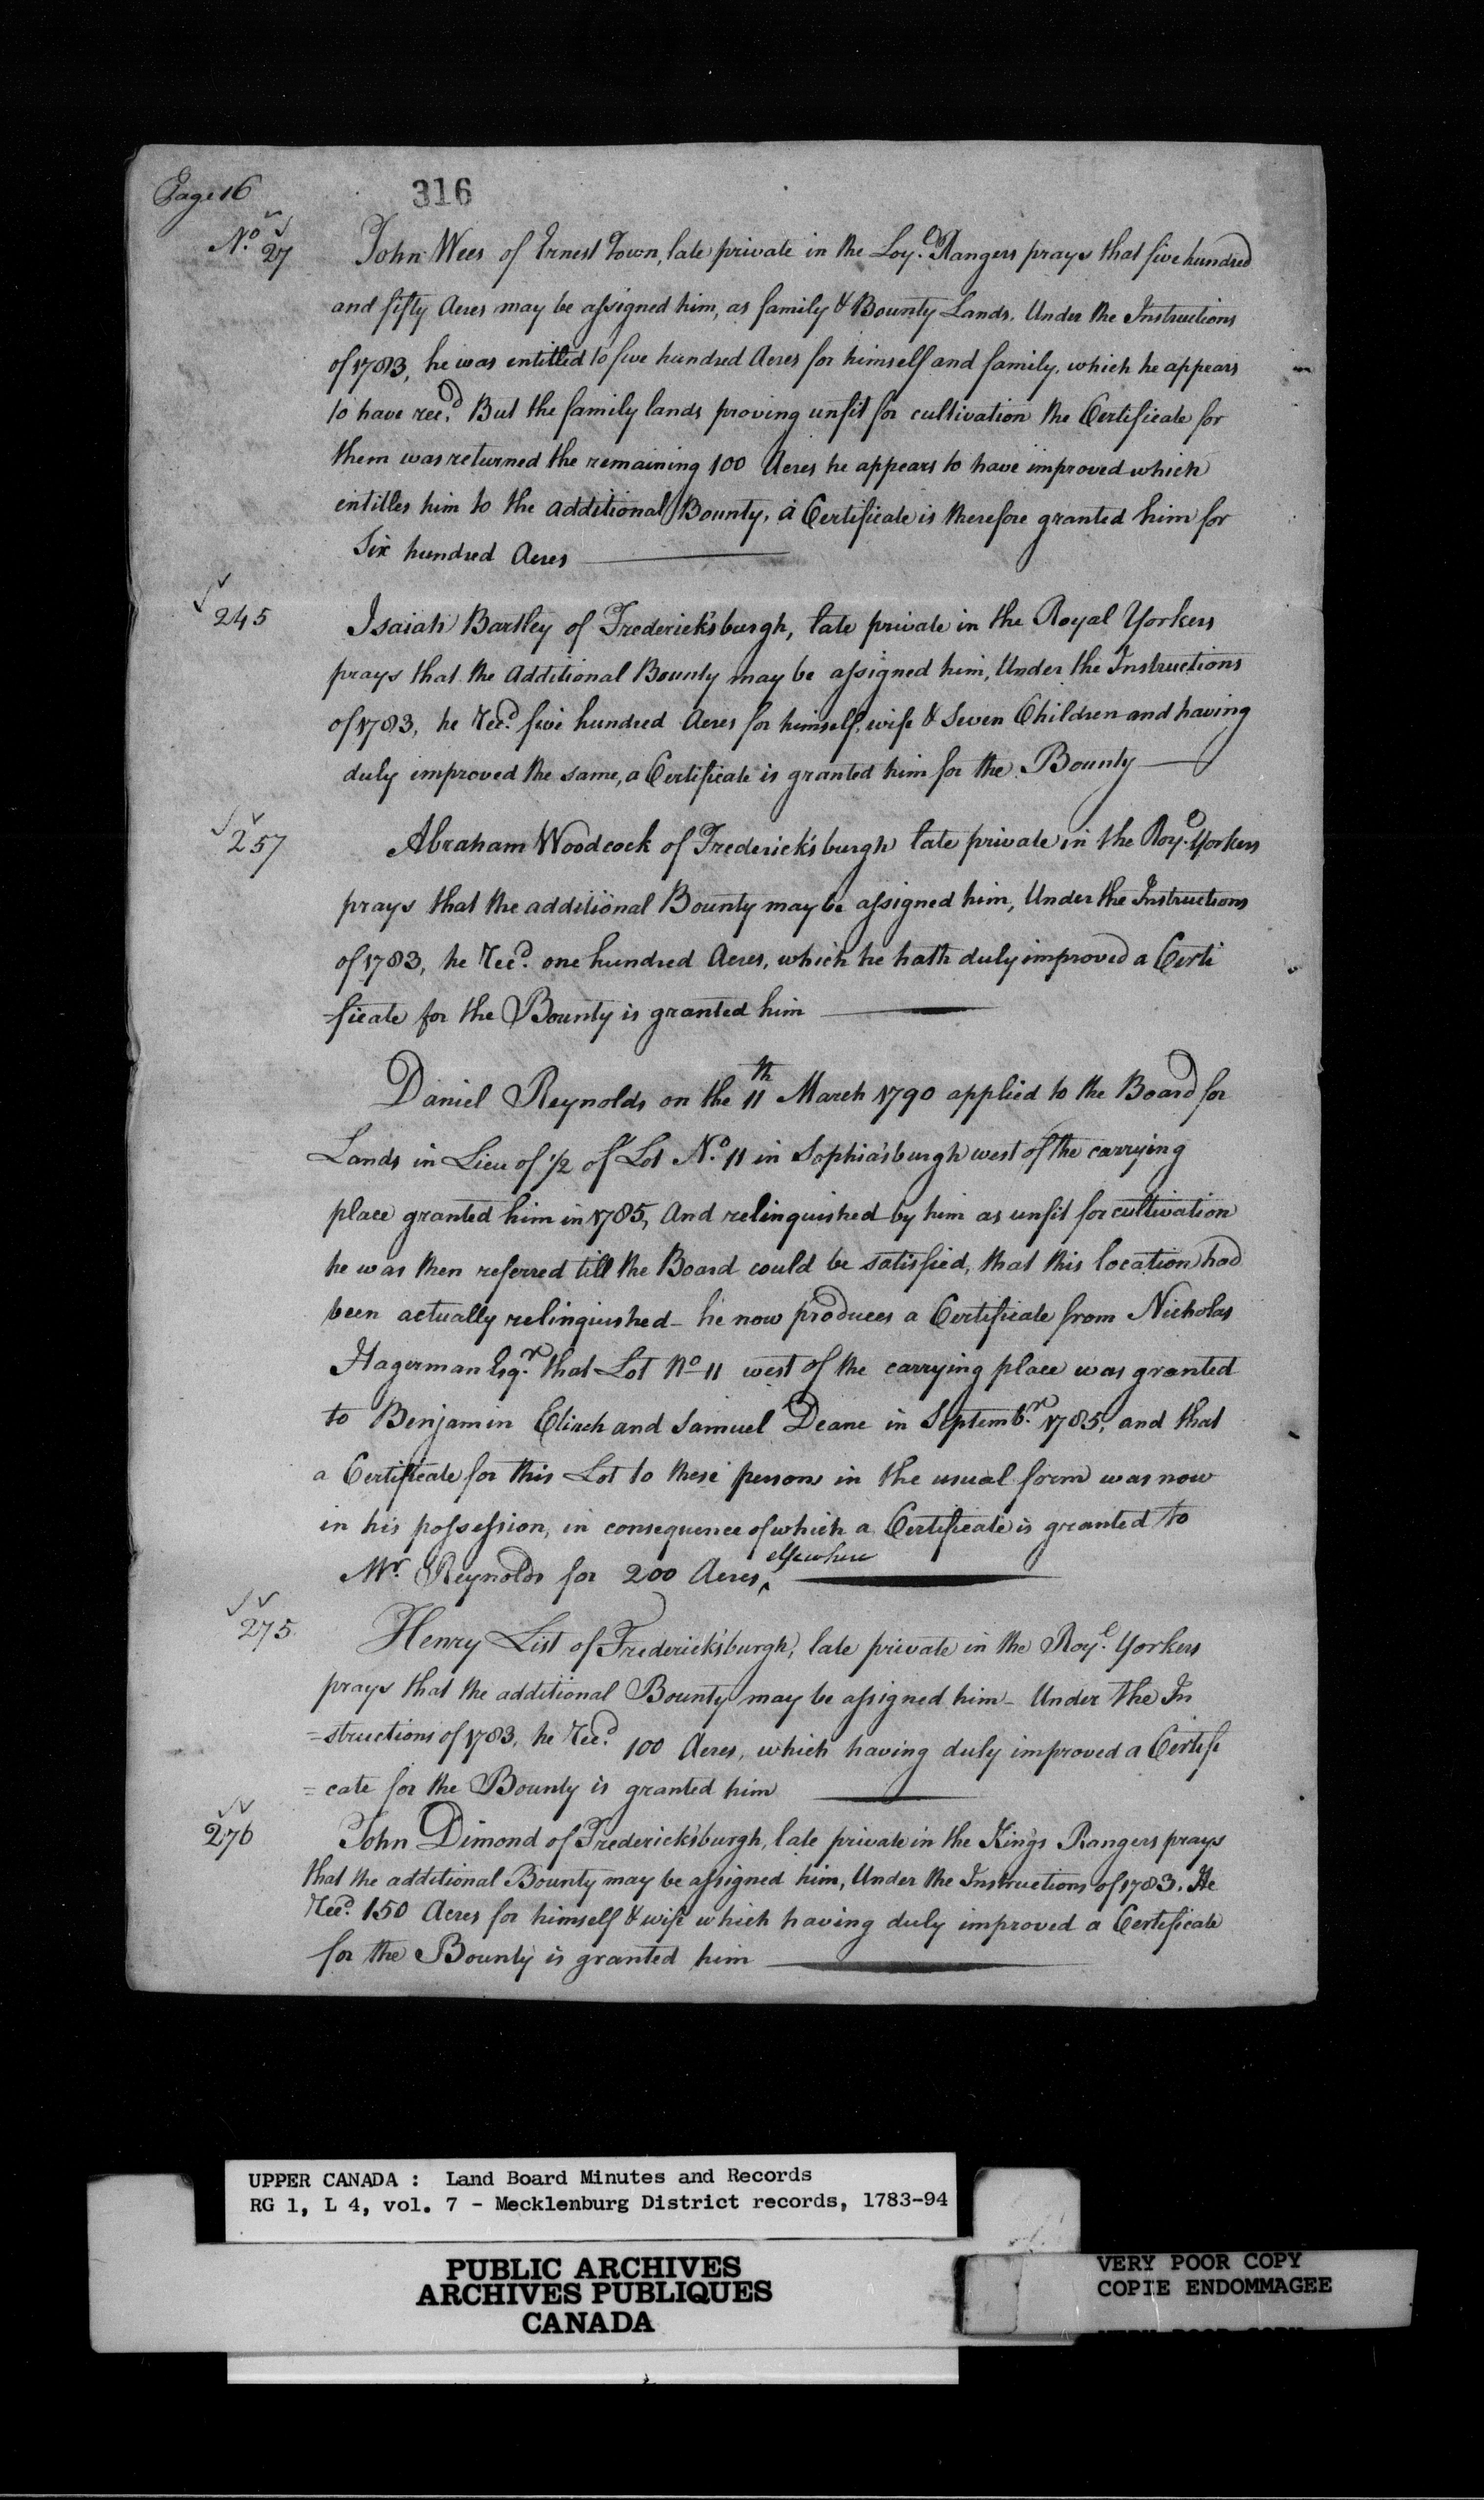 Page 16
316
No. 27
John Wees of Ernest Town, late private in the Loy.l Rangers prays that five hundred
and fifty Acres may be assigned him, as family & Bounty Lands. Under the Instructions
of 1783, he was entitled to five hundred Acres for himself and family, which he appears
to have rec.d But the family lands proving unfit for cultivation the Certificate for
them was returned the remaining 100 Acres he appears to have improved which
entitles him to the additional Bounty, a Certificate is therefore granted him for
Six hundred Acres
245
Isaiah Bartley of Frederick'sburgh, late private in the Royal Yorkers
prays that the Additional Bounty may be assigned him, Under the Instructions
of 1783, he Rec.d five hundred Acres for himself, wife & Seven Children and having
duly improved the same, a Certificate is granted him for the Bounty
257
Abraham Woodcock of Frederick'sburgh late private in the Roy.l Yorkers
prays that the additional Bounty may be assigned him, Under the Instructions
of 1783, he Rec.d one hundred Acres, which he hath duly improved a Certi
=ficate for the Bounty is granted him
Daniel Reynolds on the 11th March 1790 applied to the Board for
Lands in Lieu of 1/2 of Lot No. 11 in Sophia'sburgh west of the carrying
place granted him in 1785, And relinquished by him as unfit for cultivation
he was then referred till the Board could be satisfied, that this location had
been actually relinquished - he now produces a Certificate from Nicholas
Hagerman Esq.r that Lot No 11 west of the carrying place was granted
to Benjamin Clinch and Samuel Deane in Septemb.r 1785, and that
a Certificate for this Lot to these persons in the usual form was now
in his possession, in consequence of which a Certificate is granted to
Mr. Reynolds for 200 Acres, elsewhere
275
Henry List of Frederick'sburgh, late private in the Roy.l Yorkers
prays that the additional Bounty may be assigned him - Under the In
=structions of 1783, he Rec.d 100 Acres, which having duly improved a Certifi
=cate for the Bounty is granted him
276
John Dimond of Frederick'sburgh, late private in the King's Rangers prays
that the additional Bounty may be assigned him, Under the Instructions of 1783. He
Rec.d 150 Acres for himself & wife which having duly improved a Certificate
for the Bounty is granted him
UPPER CANADA : Land Board Minutes and Records
RG 1, L 4, vol. 7 - Mecklenburg District records, 1783-94
PUBLIC ARCHIVES
ARCHIVES PUBLIQUES
CANADA
VERY POOR COPY
COPIE ENDOMMAGEE